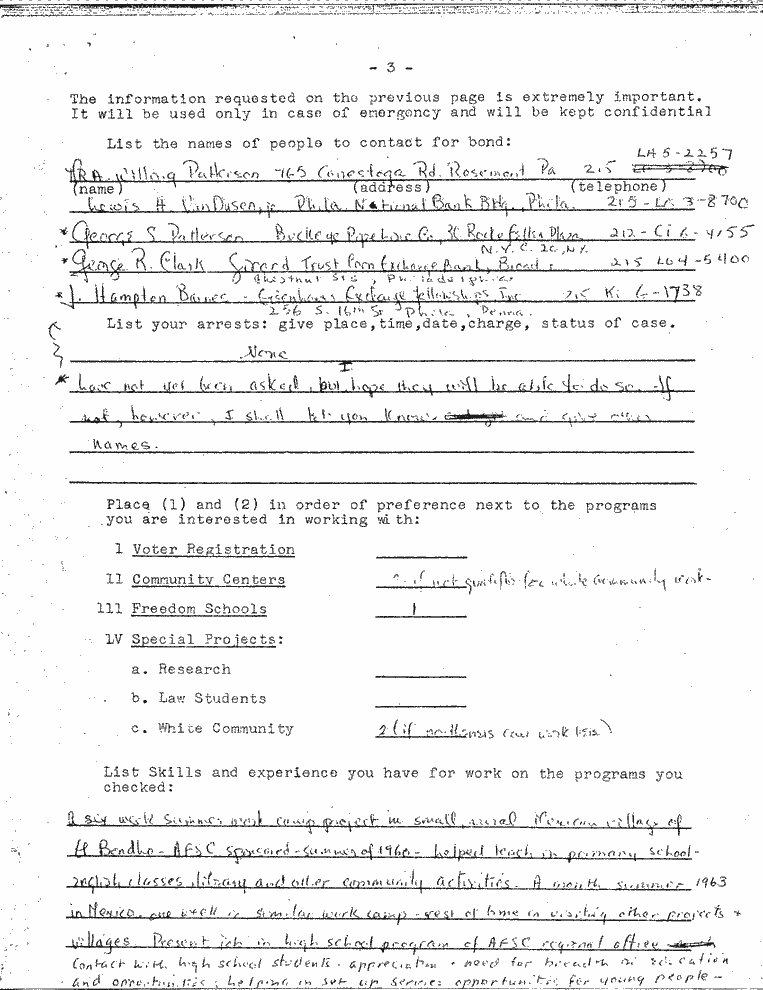 - 3 -
The information requested on the previous page is extremely important.
It will be used only in case of emergency and will be kept confidential
List the names of people to contact for bond:
LA 5-2257
Patterson 765 Conestoga Rd. Rosemont Pa 215
(name) (address) (telephone)
Lewis H. VanDusen, jr. Phila. National Bank Bldg., Phila. 215-LO 3-8700
* George S Patterson Buckeye Pipe Line Co, 30 Rockefeller Plaza 212-Ci 6-4155
N.Y.C. 20, N.Y.
* George R. Clark Girard Trust Corn Exchange Bank, Broad & 215 LO4-5400
Chestnut Sts, Philadelphia
* J. Hampton Barnes - Eisenhower Exchange Fellowships Inc. 215 Ki 6-1738
256 S. 16th St Phila, Penna.
List your arrests: give place,time,date,charge, status of case.
None
I
* have not yet been asked, but hope they will be able to do so. If
not, however, I shall let you know and give other
names.
Place (1) and (2) in order of preference next to the programs
you are interested in working with:
I Voter Registration
II Community Centers 2 if not qualified for white community work.
III Freedom Schools 1
IV Special Projects:
a. Research
b. Law Students
c. White Community 2 (if can work this)
List Skills and experience you have for work on the programs you
checked:
A six week summer work camp project in small, rural Mexican village of
El - AFSC sponsored - summer of 1960 - helped teach in primary school -
english classes, library and other community activities. A month summer 1963
in Mexico, one week in similar work camp - rest of time in visiting other projects +
villages. Present job in high school program of AFSC regional office
Contact with high school students - appreciation + need for breadth in education
and opportunities; helping in set up service opportunities for young people -